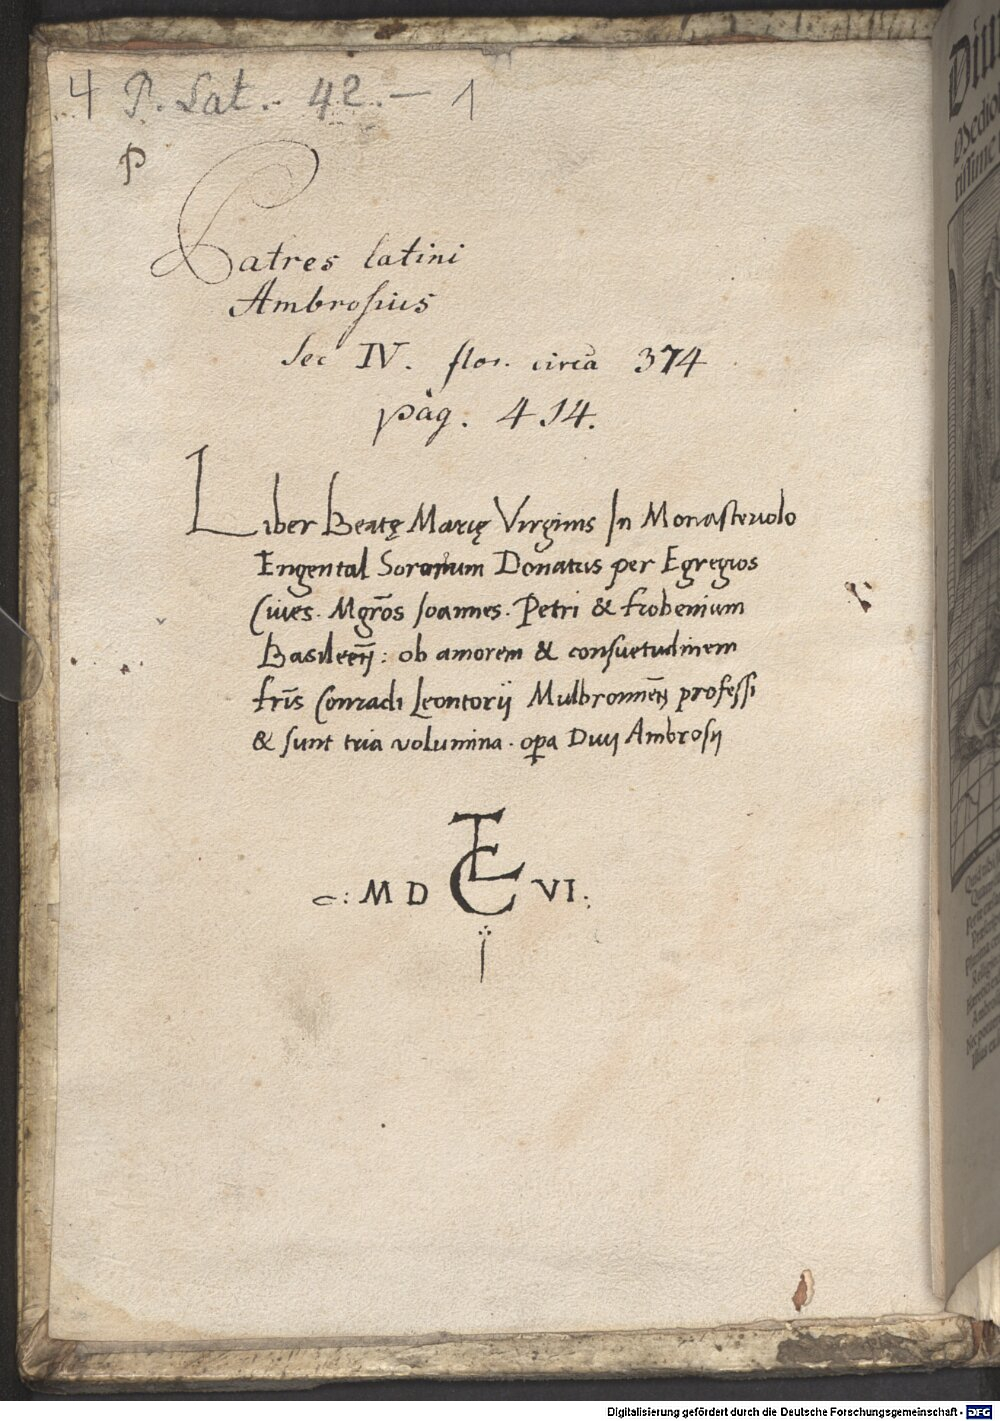 4 P. Lat. 42. — 1
P
Patres latini
Ambrosius
Sec IV. flor. circa 374
pag. 414.
Liber Beatę Marię Virginis In Monasteriolo
Engental Sororum Donatus per Egregios
Ciues. Mgr̄os Ioannes. Petri & frobenium
Basileeñ: ob amorem & consuetudinem
fr̄is Conradi Leontorij Mulbronneñ professi
& sunt tria volumina. opa Diui Ambrosij
MD VI.
Digitalisierung gefördert durch die Deutsche Forschungsgemeinschaft - DFG